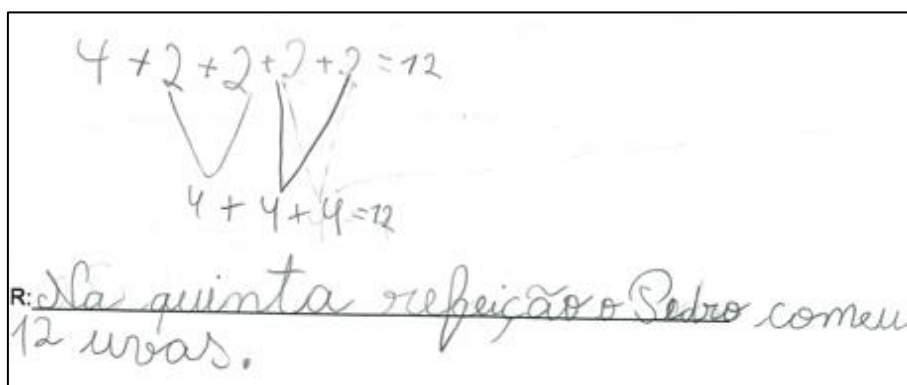 4 + 2 + 2 + 2 + 2 = 12
4 + 4 + 4 = 12
R: Na quinta refeição o Pedro comeu
12 uvas.